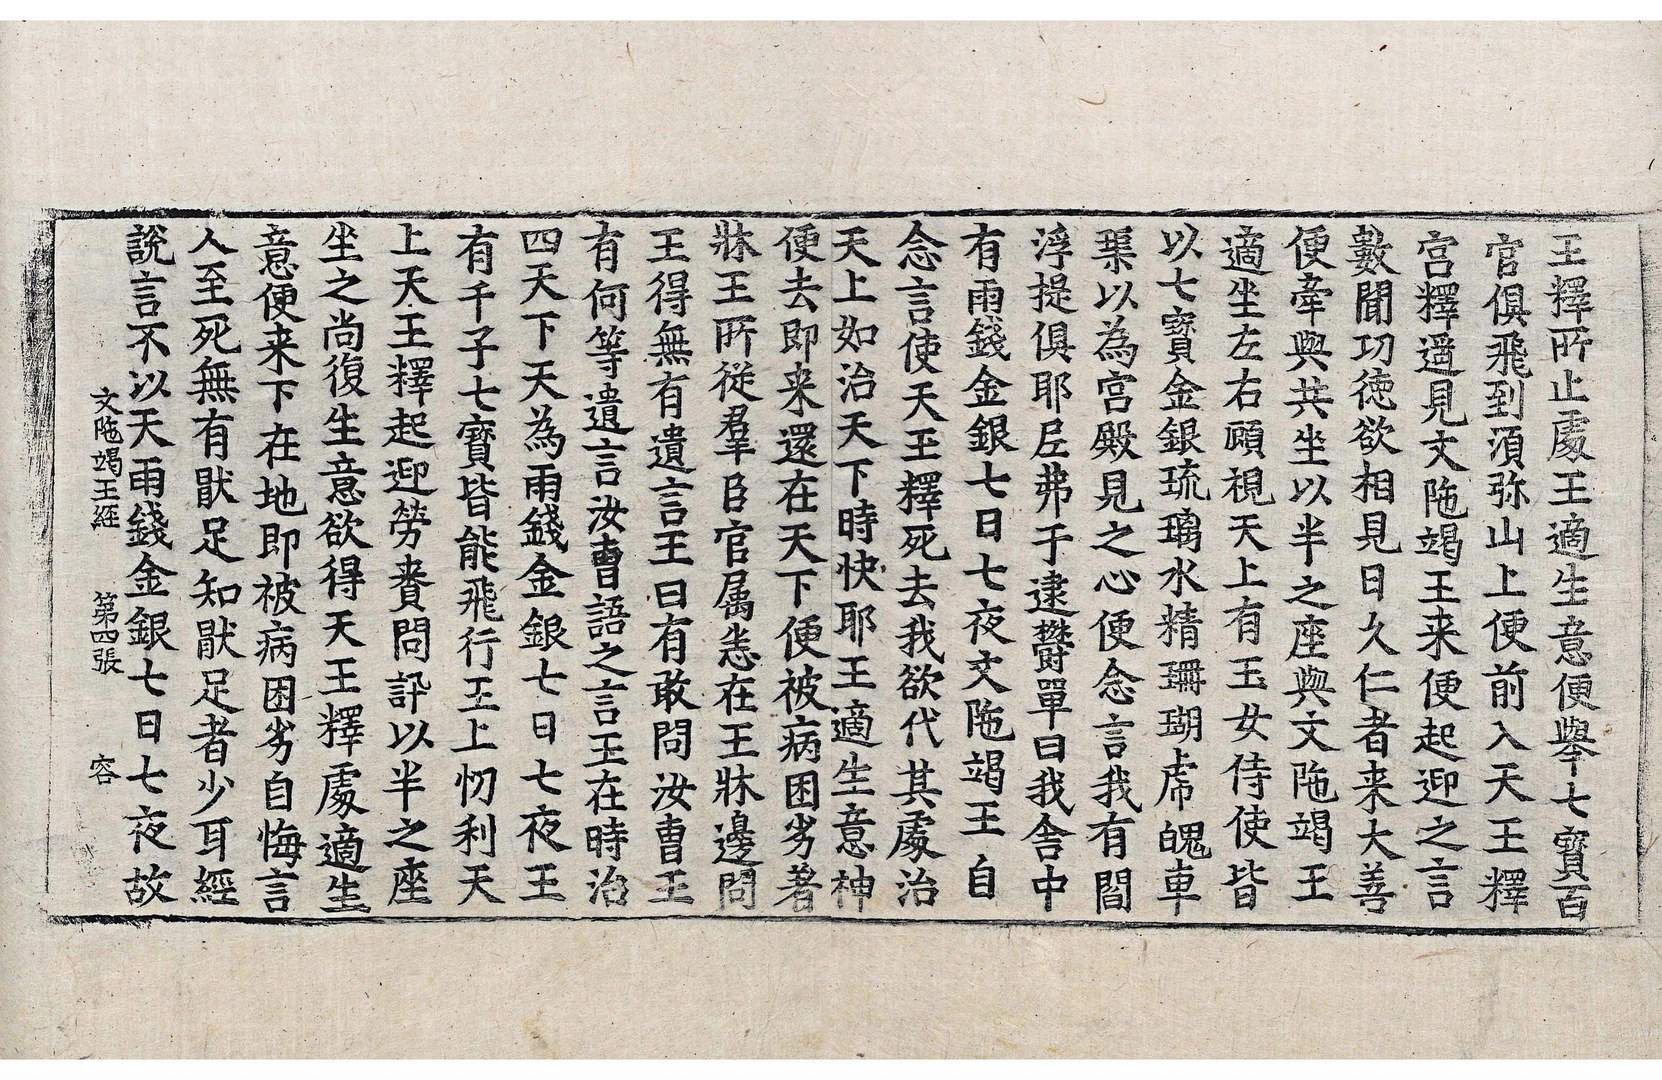 王釋所止處王適生意便舉七寶百
官俱飛到須弥山上便前入天王釋
宮釋遥見文陁竭王来便起迎之言
數聞功徳欲相見日久仁者来大善
便牽與共坐以半之座與文陁竭王
適坐左右頋視天上有玉女侍使皆
以七寶金銀琉璃水精珊瑚虎魄車
渠以為宮殿見之心便念言我有閻
浮提俱耶尼弗于逮欝單曰我舍中
有雨錢金銀七日七夜文陁竭王自
念言使天王釋死去我欲代其處治
天上如治天下時快耶王適生意神
便去即来還在天下便被病困劣著
牀王所從羣臣官属悉在王牀邊問
王得無有遺言王曰有敢問汝曹王
有何等遺言汝曹語之言王在時治
四天下天為雨錢金銀七日七夜王
有千子七寶皆能飛行王上忉利天
上天王釋起迎勞賚問訊以半之座
坐之尚復生意欲得天王釋處適生
意便来下在地即被病困劣自悔言
人至死無有猒足知猒足者少耳經
說言不以天雨錢金銀七日七夜故
文陁竭王經 第四張 容